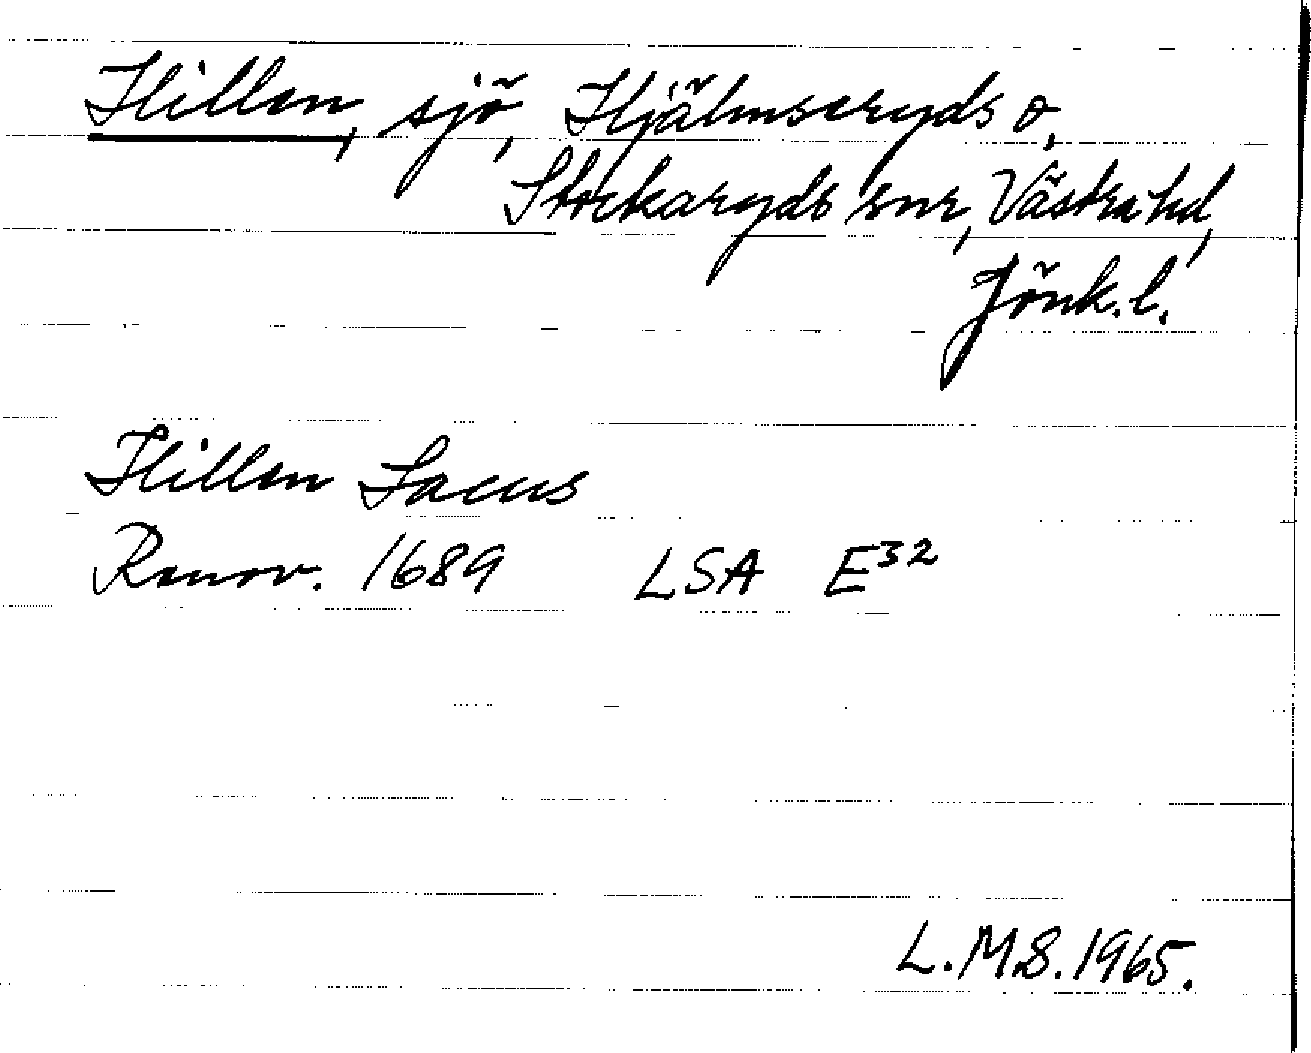 Hillen, sjö, Hjälmseryds o.
Stockaryds snr, Västra hd,
Jönk. l.
Hillen Lacus
Renov. 1689 LSA E³²
L.M.S. 1965.